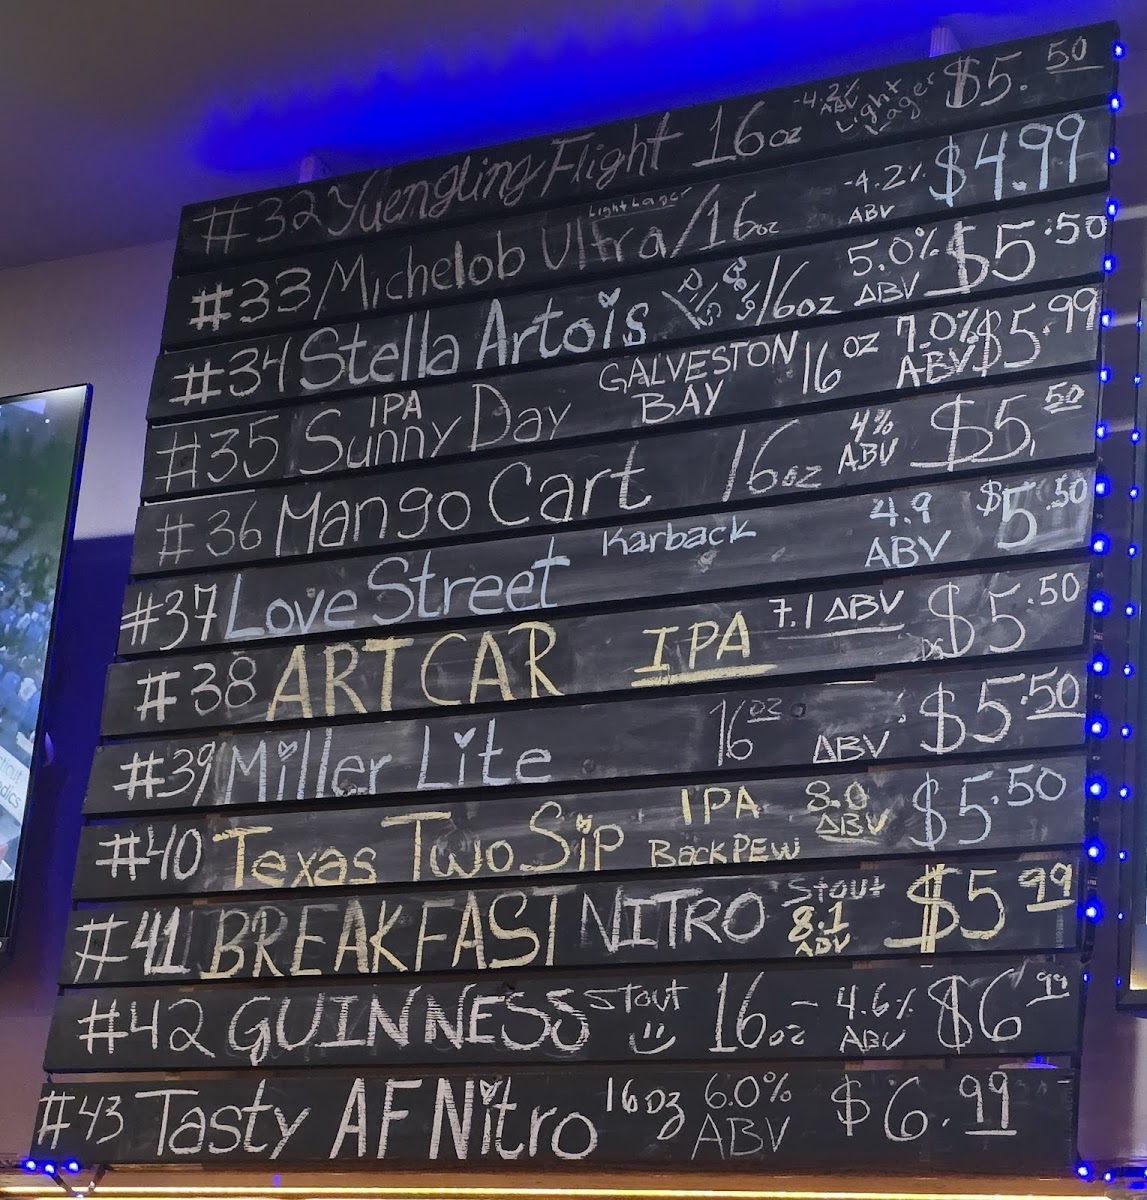 #32 Yuengling Flight 16oz -4.2% ABV Light Lager $5.50
#33 Michelob Ultra/16oz Light Lager -4.2% ABV $4.99
#34 Stella Artois 16oz 5.0% ABV $5.50
#35 IPA Sunny Day GALVESTON BAY 16oz 7.0% ABV $5.99
#36 Mango Cart 16oz 4% ABV $5.50
#37 Love Street Karback 4.9 ABV $5.50
#38 ART CAR IPA 7.1 ABV $5.50
#39 Miller Lite 16oz ABV $5.50
#40 Texas Two Sip IPA BackPEW 8.0 ABV $5.50
#41 BREAKFAST NITRO Stout 8.1 ABV $5.99
#42 GUINNESS Stout 16oz - 4.6% ABV $6.99
#43 Tasty AF Nitro 16oz 6.0% ABV $6.99